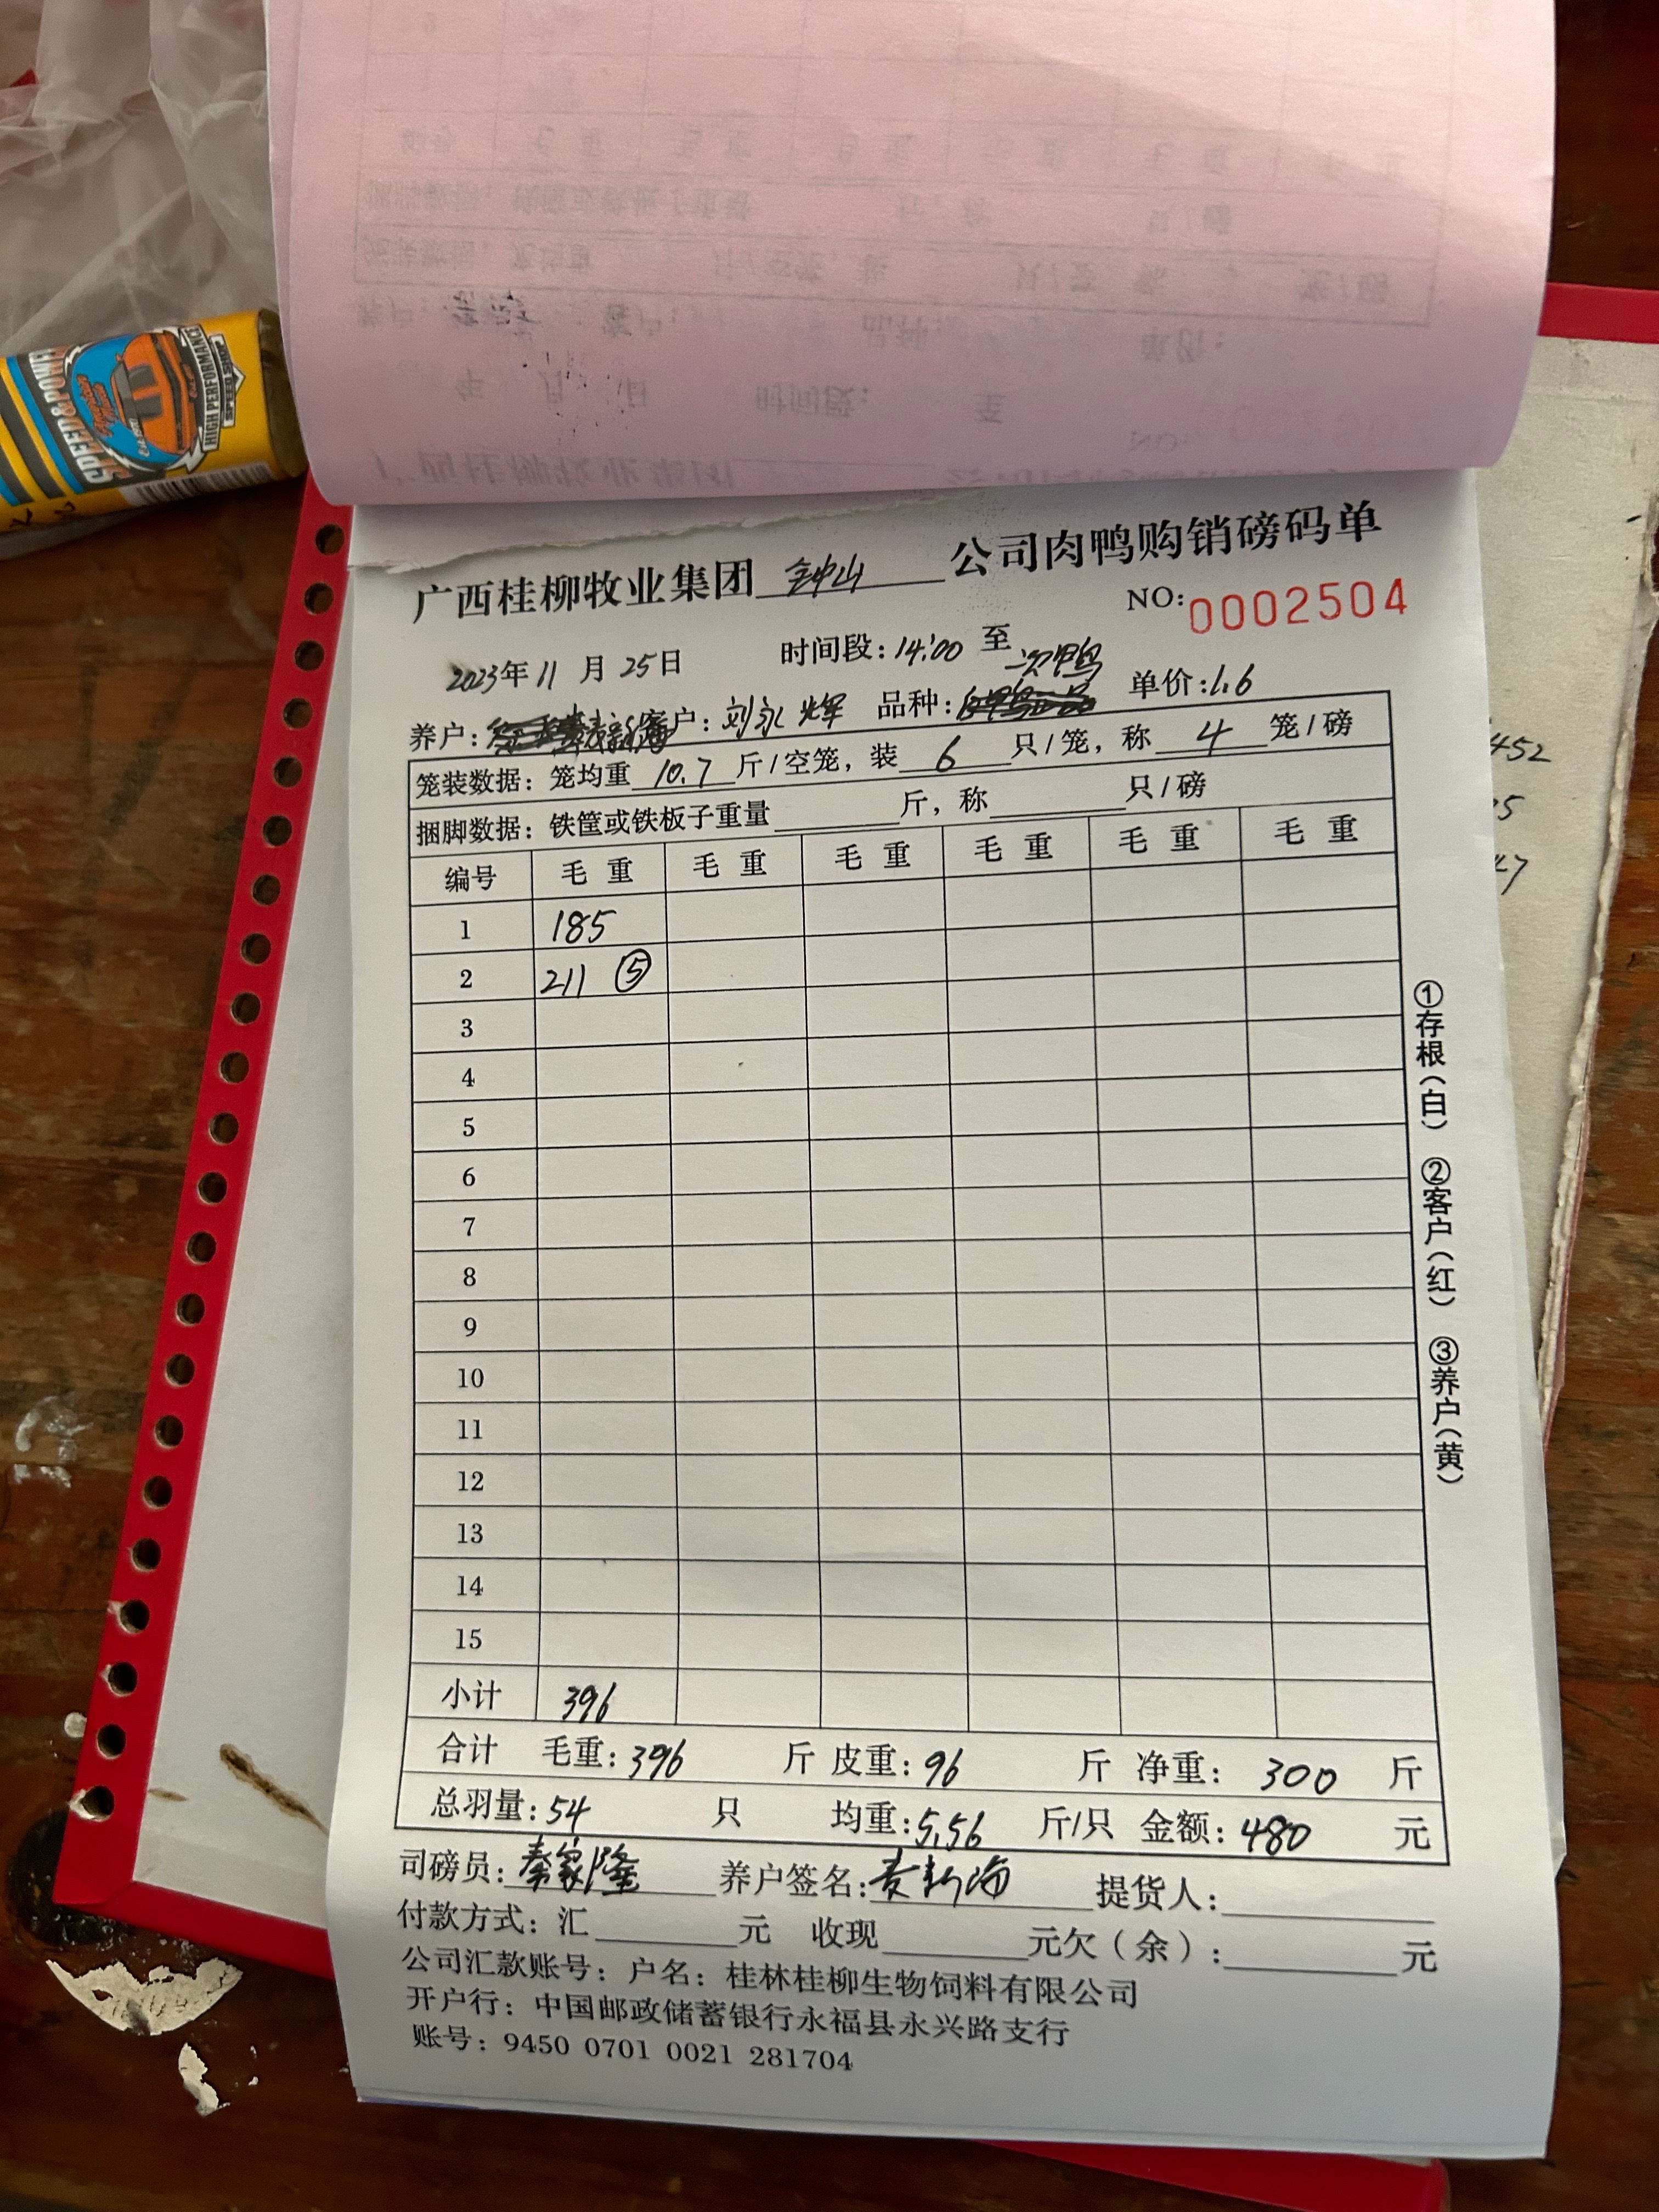 HIGH PERFORMANCE
SPEED SHOP
SPEED&POWER
广西桂柳牧业集团 钟山 公司肉鸭购销磅码单
NO: 0002504
2023年 11 月 25日 时间段: 14:00 至
次鸭
养户: 客户: 刘永辉 品种: 单价: 1.6
笼装数据: 笼均重 10.7 斤/空笼, 装 6 只/笼, 称 4 笼/磅
捆脚数据: 铁筐或铁板子重量 斤, 称 只/磅
编号 毛重 毛重 毛重 毛重 毛重 毛重
1 185
2 211 ⑤
3
4
5
6
7
8
9
10
11
12
13
14
15
小计 396
合计 毛重: 396 斤 皮重: 96 斤 净重: 300 斤
总羽量: 54 只 均重: 5.56 斤/只 金额: 480 元
司磅员: 秦家隆 养户签名: 提货人:
付款方式: 汇 元 收现 元欠(余): 元
公司汇款账号: 户名: 桂林桂柳生物饲料有限公司
开户行: 中国邮政储蓄银行永福县永兴路支行
账号: 9450 0701 0021 281704
①存根(白) ②客户(红) ③养户(黄)
452
5
47